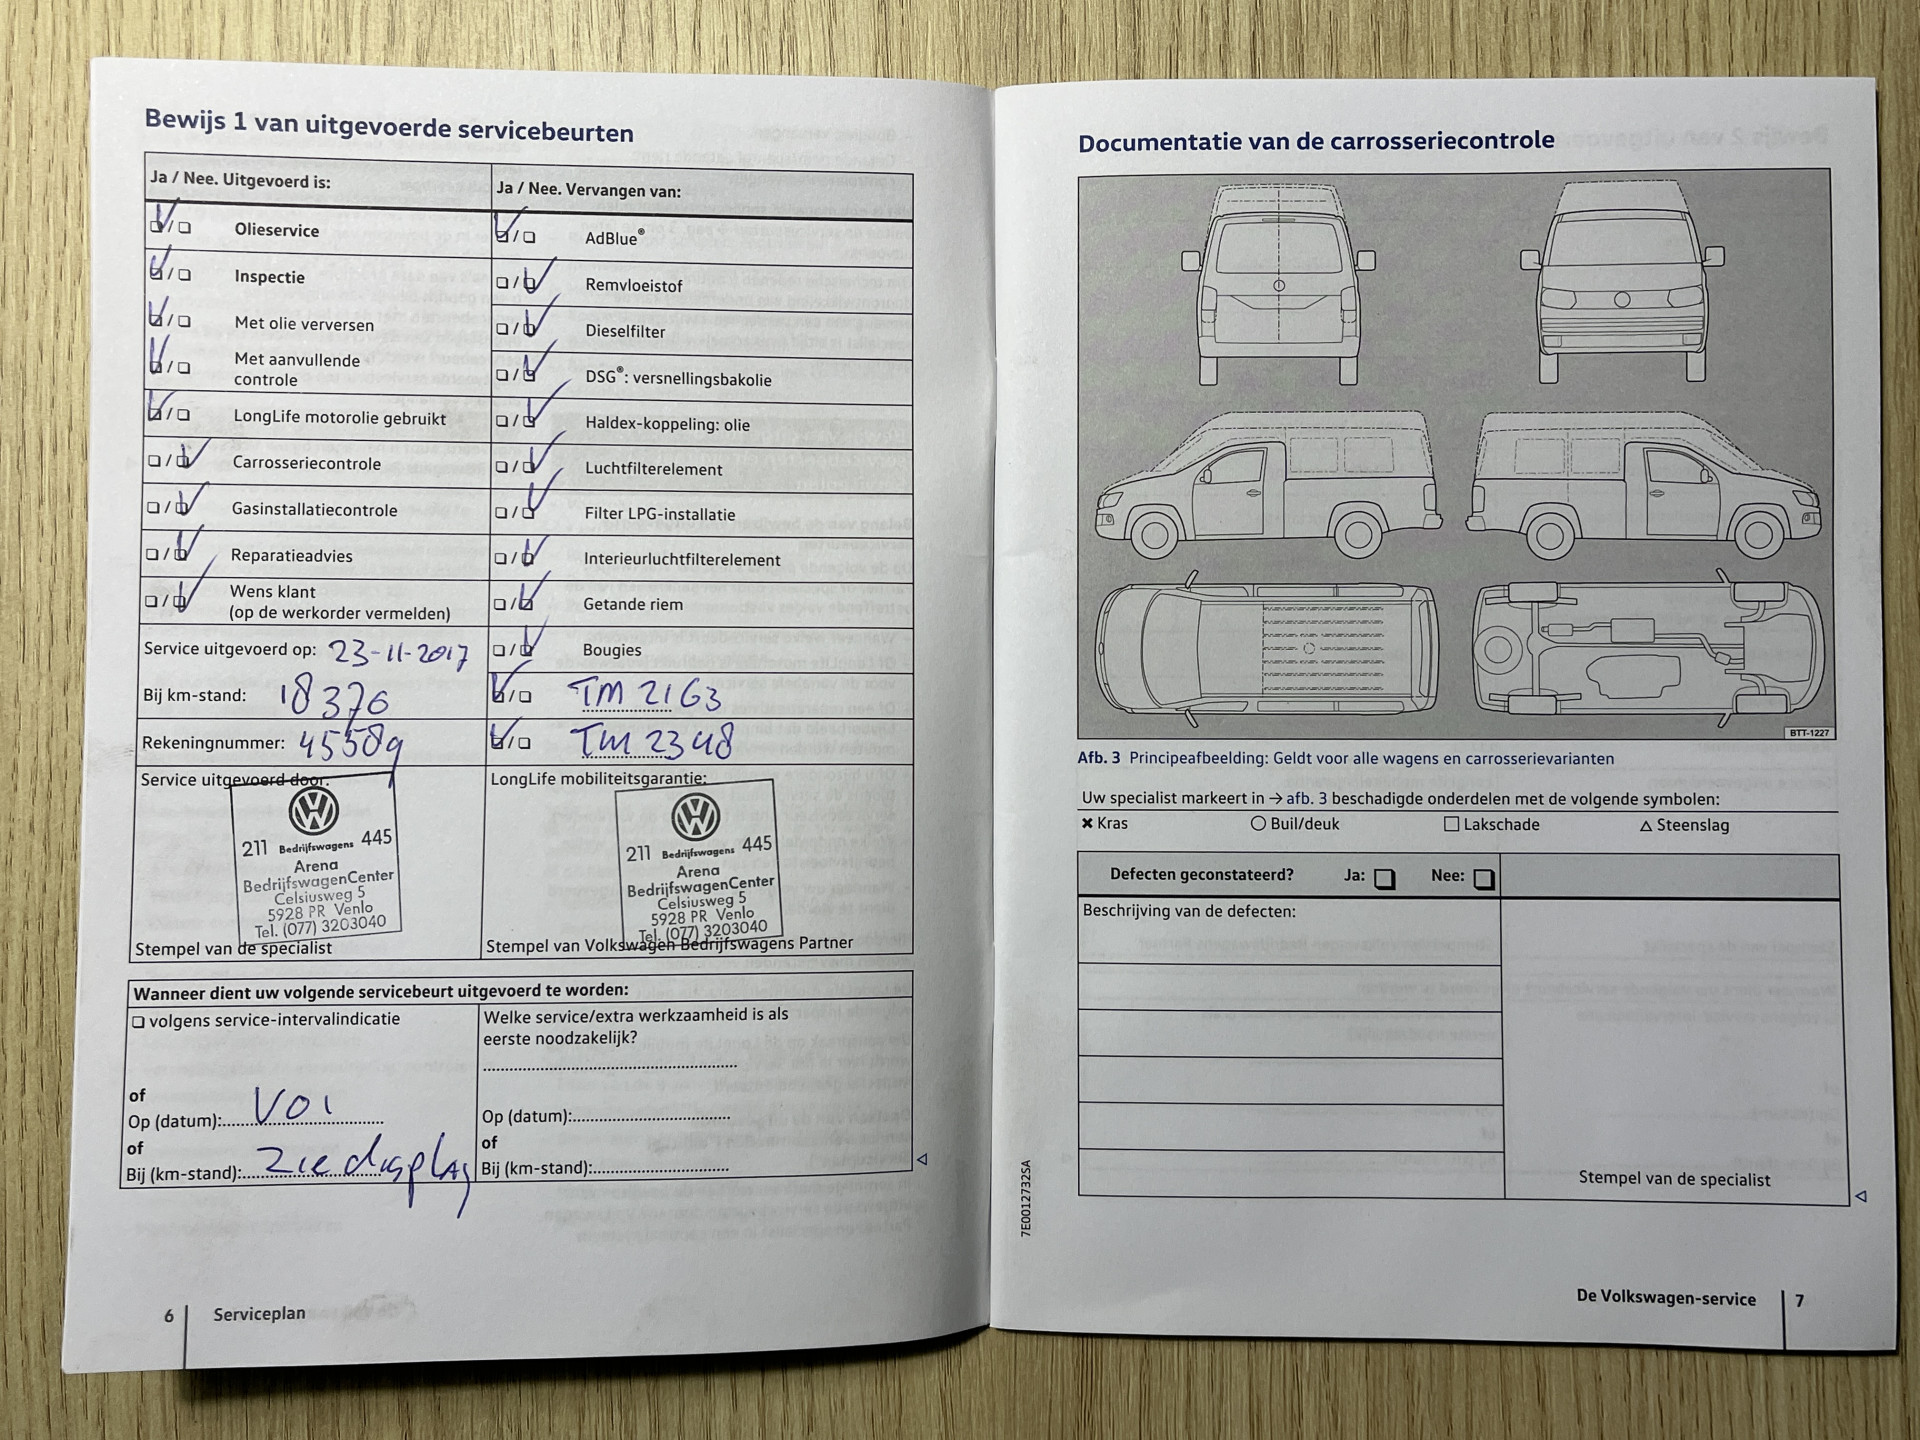 Bewijs 1 van uitgevoerde servicebeurten
Ja / Nee. Uitgevoerd is:
☑/☐ Olieservice
☑/☐ Inspectie
☑/☐ Met olie verversen
☑/☐ Met aanvullende
controle
☑/☐ LongLife motorolie gebruikt
☐/☑ Carrosseriecontrole
☐/☑ Gasinstallatiecontrole
☐/☑ Reparatieadvies
☐/☑ Wens klant
(op de werkorder vermelden)
Service uitgevoerd op: 23-11-2017
Bij km-stand: 18376
Rekeningnummer: 45589
Service uitgevoerd door:
211 Bedrijfswagens 445
Arena
BedrijfswagenCenter
Celsiusweg 5
5928 PR Venlo
Tel. (077) 3203040
Stempel van de specialist
Ja / Nee. Vervangen van:
☑/☐ AdBlue®
☐/☑ Remvloeistof
☐/☑ Dieselfilter
☐/☑ DSG®: versnellingsbakolie
☐/☑ Haldex-koppeling: olie
☐/☑ Luchtfilterelement
☐/☑ Filter LPG-installatie
☐/☑ Interieurluchtfilterelement
☐/☑ Getande riem
☐/☑ Bougies
☑/☐ TM 2163
☑/☐ TM 2348
LongLife mobiliteitsgarantie:
211 Bedrijfswagens 445
Arena
BedrijfswagenCenter
Celsiusweg 5
5928 PR Venlo
Tel. (077) 3203040
Stempel van Volkswagen Bedrijfswagens Partner
Wanneer dient uw volgende servicebeurt uitgevoerd te worden:
☐ volgens service-intervalindicatie
of
Op (datum): VOI
of
Bij (km-stand): zie display
Welke service/extra werkzaamheid is als
eerste noodzakelijk?
Op (datum):
of
Bij (km-stand):
6 Serviceplan
Documentatie van de carrosseriecontrole
BTT-1227
Afb. 3 Principeafbeelding: Geldt voor alle wagens en carrosserievarianten
Uw specialist markeert in → afb. 3 beschadigde onderdelen met de volgende symbolen:
✖ Kras ○ Buil/deuk □ Lakschade △ Steenslag
Defecten geconstateerd? Ja: ☐ Nee: ☐
Beschrijving van de defecten:
Stempel van de specialist
7E0012732SA
De Volkswagen-service 7